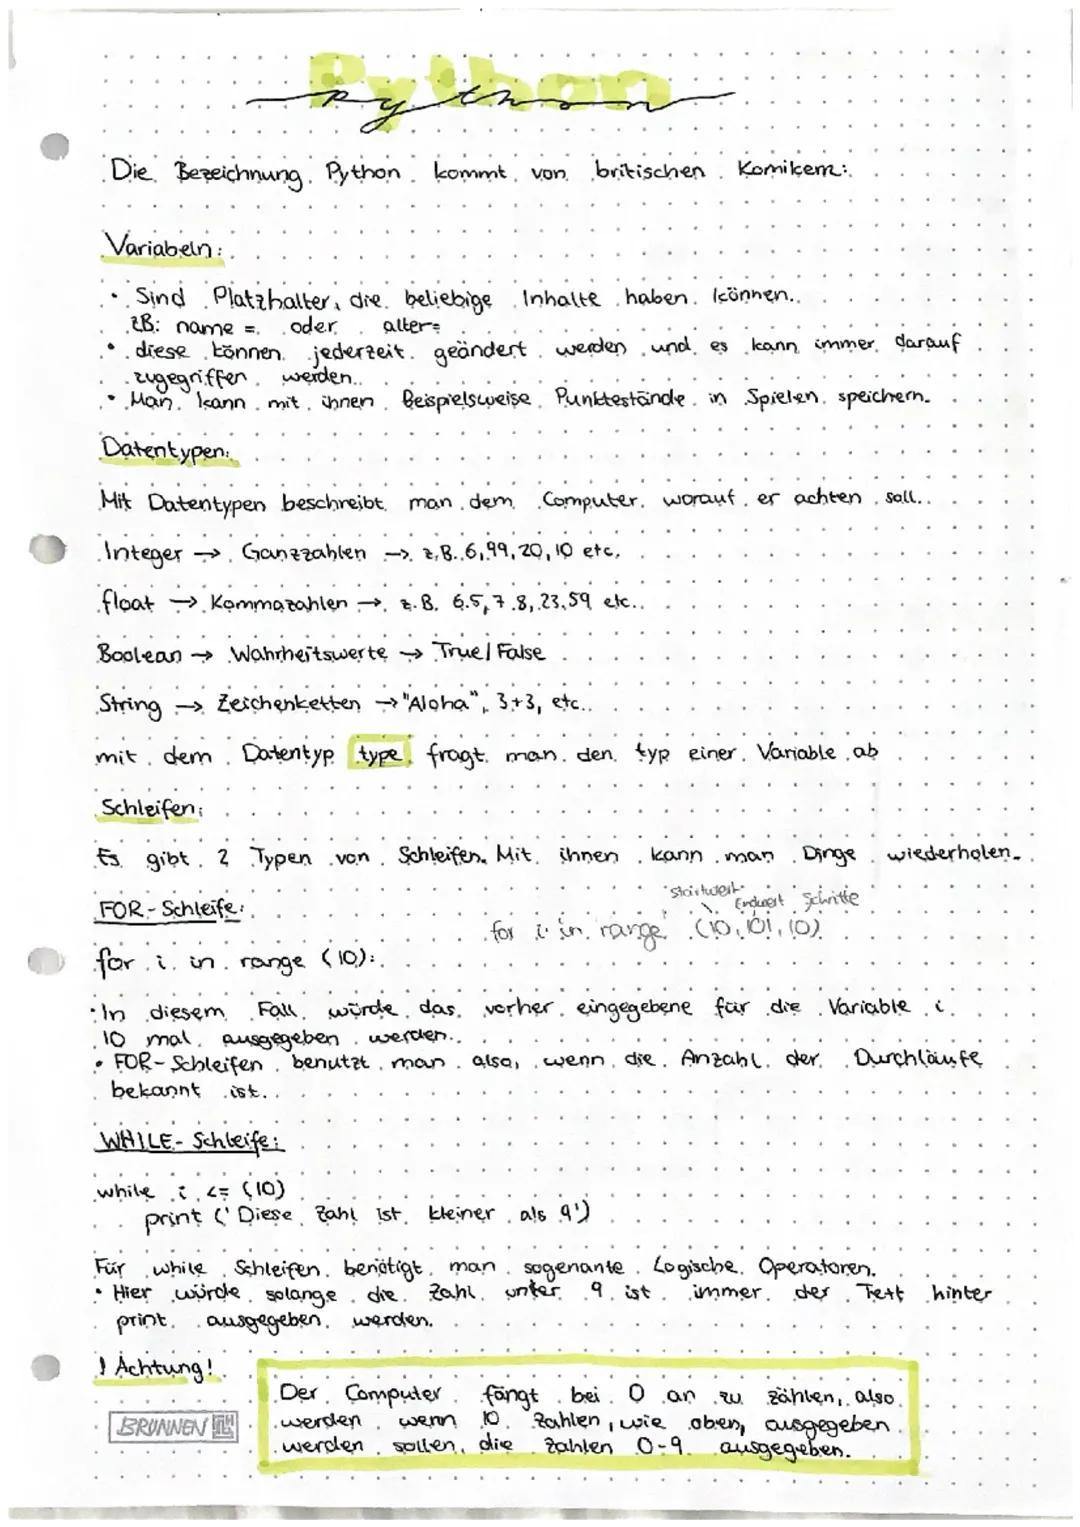 Python
python
Die Bezeichnung Python kommt von britischen Komikern:
Variabeln:
• Sind Platzhalter, die beliebige Inhalte haben können.
zB: name = oder alter=
• diese können jederzeit geändert werden und es kann immer darauf
zugegriffen werden.
• Man kann mit ihnen Beispielsweise Punktestände in Spielen speichern.
Datentypen:
Mit Datentypen beschreibt man dem Computer worauf er achten soll.
Integer → Ganzzahlen → z.B. 6,99,20,10 etc.
float → Kommazahlen → z.B. 6.5, 7.8, 23.59 etc.
Boolean → Wahrheitswerte → True/False
String → Zeichenketten → "Aloha", 3+3, etc.
mit dem Datentyp type fragt man den typ einer Variable ab
Schleifen:
Es gibt 2 Typen von Schleifen. Mit ihnen kann man Dinge wiederholen.
Startwert Endwert Schritte
FOR-Schleife:
for i in range (10,101,10)
for i in range (10):
• In diesem Fall würde das vorher eingegebene für die Variable i
10 mal ausgegeben werden.
• FOR-Schleifen benutzt man also, wenn die Anzahl der Durchläufe
bekannt ist.
WHILE-Schleife:
while i <= (10)
print ('Diese Zahl ist kleiner als 9')
Für while Schleifen benötigt man sogenante Logische Operatoren.
• Hier würde solange die Zahl unter 9 ist immer der Text hinter
print ausgegeben werden.
! Achtung!
Der Computer fängt bei 0 an zu zählen, also
werden wenn 10 Zahlen, wie oben, ausgegeben
werden sollen, die Zahlen 0-9 ausgegeben.
BRUNNEN